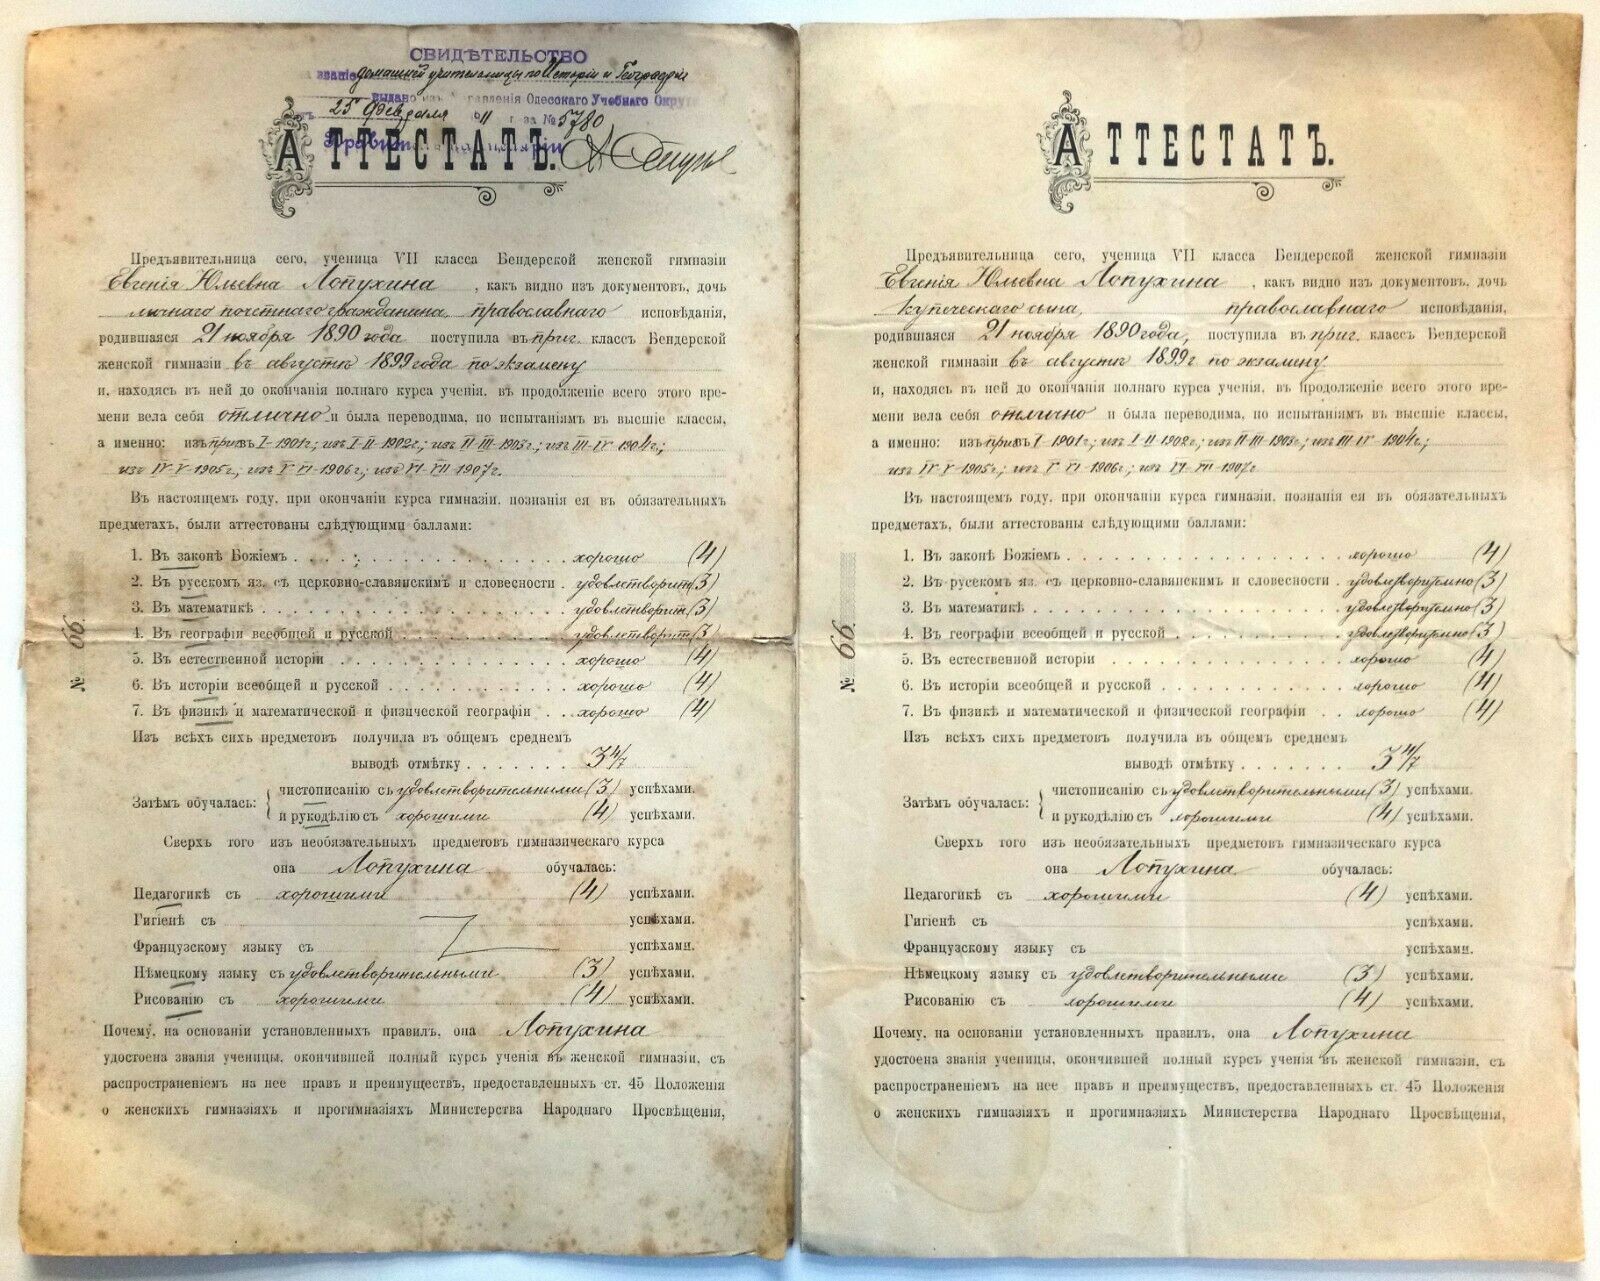 СВИДѢТЕЛЬСТВО
званіе домашней учительницы по Исторіи и Географіи
выдано изъ Управленія Одесскаго Учебнаго Округа
25 февраля 1911 г. за № 5780
АТТЕСТАТЪ.
Предъявительница сего, ученица VII класса Бендерской женской гимназіи
Евгенія Юльевна Лопухина, какъ видно изъ документовъ, дочь
личнаго почетнаго гражданина, православнаго исповѣданія,
родившаяся 21 ноября 1890 года поступила въ приг. классъ Бендерской
женской гимназіи въ августѣ 1899 года по экзамену
и, находясь въ ней до окончанія полнаго курса ученія, въ продолженіе всего этого вре-
мени вела себя отлично и была переводима, по испытаніямъ въ высшіе классы,
а именно: изъ приг. въ I-1901г.; изъ I-II-1902г.; изъ II-III-1903г.; изъ III-IV 1904г.;
изъ IV-V-1905г.; изъ V-VI-1906г.; изъ VI-VII-1907г.
Въ настоящемъ году, при окончаніи курса гимназіи, познанія ея въ обязательныхъ
предметахъ, были аттестованы слѣдующими баллами:
1. Въ законѣ Божіемъ хорошо (4)
2. Въ русскомъ яз. съ церковно-славянскимъ и словесности удовлетворит. (3)
3. Въ математикѣ удовлетворит. (3)
4. Въ географіи всеобщей и русской удовлетворит. (3)
5. Въ естественной исторіи хорошо (4)
6. Въ исторіи всеобщей и русской хорошо (4)
7. Въ физикѣ и математической и физической географіи хорошо (4)
Изъ всѣхъ сихъ предметовъ получила въ общемъ среднемъ
выводѣ отмѣтку 3 4/7
чистописанію съ удовлетворительными (3) успѣхами.
Затѣмъ обучалась:
и рукодѣлію съ хорошими (4) успѣхами.
Сверхъ того изъ необязательныхъ предметовъ гимназическаго курса
она Лопухина обучалась:
Педагогикѣ съ хорошими (4) успѣхами.
Гигіенѣ съ успѣхами.
Французскому языку съ успѣхами.
Нѣмецкому языку съ удовлетворительными (3) успѣхами.
Рисованію съ хорошими (4) успѣхами.
Почему, на основаніи установленныхъ правилъ, она Лопухина
удостоена званія ученицы, окончившей полный курсъ ученія въ женской гимназіи, съ
распространеніемъ на нее правъ и преимуществъ, предоставленныхъ ст. 45 Положенія
о женскихъ гимназіяхъ и прогимназіяхъ Министерства Народнаго Просвѣщенія,
№ 66.
АТТЕСТАТЪ.
Предъявительница сего, ученица VII класса Бендерской женской гимназіи
Евгенія Юльевна Лопухина, какъ видно изъ документовъ, дочь
купеческаго сына, православнаго исповѣданія,
родившаяся 21 ноября 1890 года, поступила въ приг. классъ Бендерской
женской гимназіи въ августѣ 1899 г по экзамену
и, находясь въ ней до окончанія полнаго курса ученія, въ продолженіе всего этого вре-
мени вела себя отлично и была переводима, по испытаніямъ въ высшіе классы,
а именно: изъ приг. въ I-1901г.; изъ I-II-1902г.; изъ II-III-1903г.; изъ III-IV-1904г.;
изъ IV-V-1905г.; изъ V-VI-1906г.; изъ VI-VII-1907г.
Въ настоящемъ году, при окончаніи курса гимназіи, познанія ея въ обязательныхъ
предметахъ, были аттестованы слѣдующими баллами:
1. Въ законѣ Божіемъ хорошо (4)
2. Въ русскомъ яз. съ церковно-славянскимъ и словесности удовлетворительно (3)
3. Въ математикѣ удовлетворительно (3)
4. Въ географіи всеобщей и русской удовлетворительно (3)
5. Въ естественной исторіи хорошо (4)
6. Въ исторіи всеобщей и русской хорошо (4)
7. Въ физикѣ и математической и физической географіи хорошо (4)
Изъ всѣхъ сихъ предметовъ получила въ общемъ среднемъ
выводѣ отмѣтку 3 4/7
чистописанію съ удовлетворительными (3) успѣхами.
Затѣмъ обучалась:
и рукодѣлію съ хорошими (4) успѣхами.
Сверхъ того изъ необязательныхъ предметовъ гимназическаго курса
она Лопухина обучалась:
Педагогикѣ съ хорошими (4) успѣхами.
Гигіенѣ съ успѣхами.
Французскому языку съ успѣхами.
Нѣмецкому языку съ удовлетворительными (3) успѣхами.
Рисованію съ хорошими (4) успѣхами.
Почему, на основаніи установленныхъ правилъ, она Лопухина
удостоена званія ученицы, окончившей полный курсъ ученія въ женской гимназіи, съ
распространеніемъ на нее правъ и преимуществъ, предоставленныхъ ст. 45 Положенія
о женскихъ гимназіяхъ и прогимназіяхъ Министерства Народнаго Просвѣщенія,
№ 66.